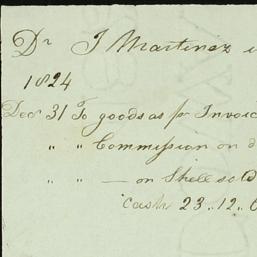 Dr J Martinez
1824
Decr 31 To goods as pr Invoic
" " Commission on
" " — on Shell sold
Cash 23..12..